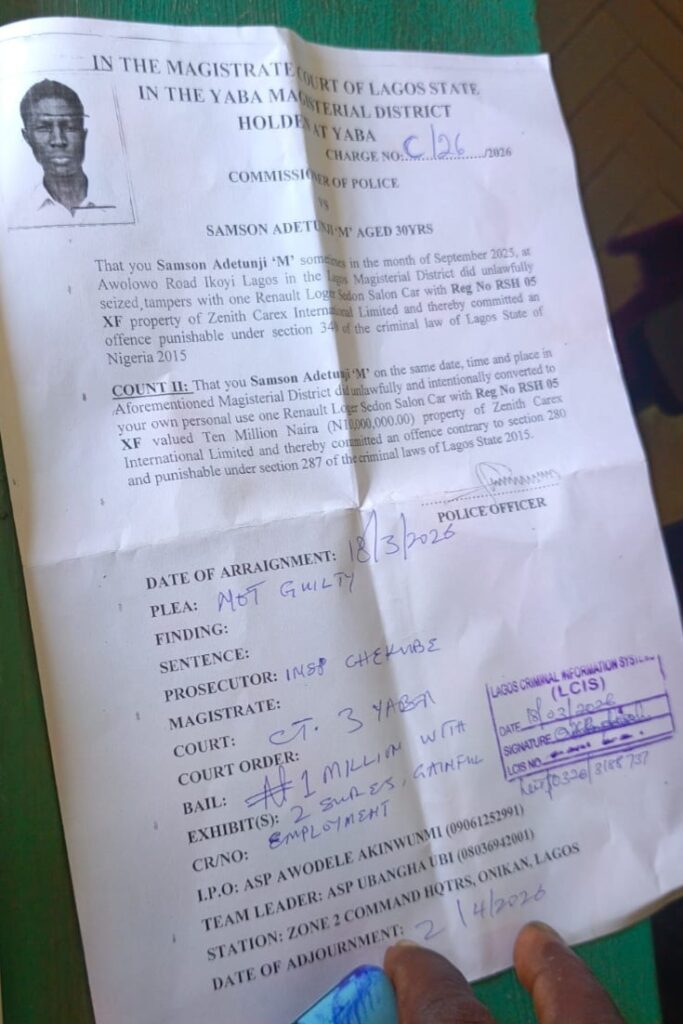 IN THE MAGISTRATE COURT OF LAGOS STATE
IN THE YABA MAGISTERIAL DISTRICT
HOLDEN AT YABA
CHARGE NO: C/26 /2026
COMMISSIONER OF POLICE
VS
SAMSON ADETUNJI 'M' AGED 30YRS
That you Samson Adetunji 'M' sometimes in the month of September 2025, at
Awolowo Road Ikoyi Lagos in the Lagos Magisterial District did unlawfully
seized tampers with one Renault Loger Sedon Salon Car with Reg No RSH 05
XF property of Zenith Carex International Limited and thereby committed an
offence punishable under section 34 of the criminal law of Lagos State of
Nigeria 2015
COUNT II: That you Samson Adetunji 'M' on the same date, time and place in
Aforementioned Magisterial District did unlawfully and intentionally converted to
your own personal use one Renault Loger Sedon Salon Car with Reg No RSH 05
XF valued Ten Million Naira (N10,000,000.00) property of Zenith Carex
International Limited and thereby committed an offence contrary to section 280
and punishable under section 287 of the criminal laws of Lagos State 2015.
POLICE OFFICER
DATE OF ARRAIGNMENT: 18/3/2026
PLEA: NOT GUILTY
FINDING:
SENTENCE:
PROSECUTOR: INSP CHEKUBE
MAGISTRATE:
COURT: CT. 3 YABA
COURT ORDER:
BAIL: ₦1 MILLION WITH
EXHIBIT(S): 2 SURES, GAINFUL
CR/NO: EMPLOYMENT
I.P.O: ASP AWODELE AKINWUNMI (09061252991)
TEAM LEADER: ASP UBANGHA UBI (08036942001)
STATION: ZONE 2 COMMAND HQTRS, ONIKAN, LAGOS
DATE OF ADJOURNMENT: 2/4/2026
LAGOS CRIMINAL INFORMATION SYSTEM
(LCIS)
DATE 18/03/2026
SIGNATURE
LCIS NO.
0326/3188737